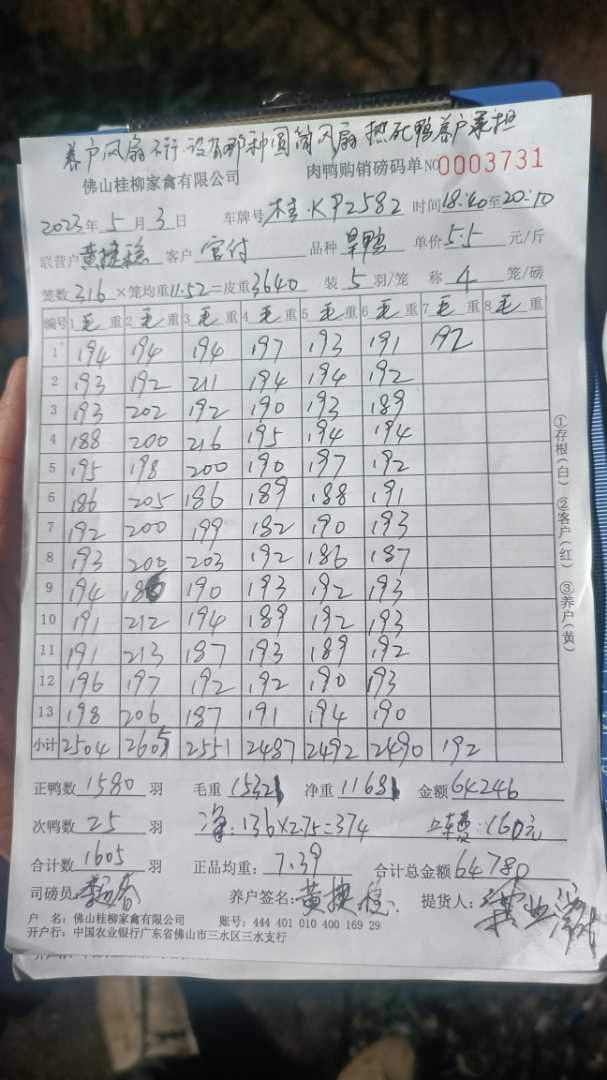 养户风扇不行.没有那种圆筒风扇 热死鸭养户承担
佛山桂柳家禽有限公司 肉鸭购销磅码单 NO 0003731
2023年5月3日 车牌号 桂·KP2582 时间18:40至20:10
联营户 黄捷稳 客户 官付 品种 旱鸭 单价5.5元/斤
笼数316×笼均重11.52=皮重3640 装5羽/笼 称4笼/磅
编号 1毛重 2毛重 3毛重 4毛重 5毛重 6毛重 7毛重 8毛重
1 194 194 194 197 193 191 192
2 193 192 211 194 194 192
3 193 202 192 190 193 189
4 188 200 216 195 194 194
5 195 198 200 190 197 192
6 186 205 186 189 188 191
7 192 200 199 182 190 193
8 193 200 203 192 186 187
9 194 186 190 193 192 193
10 191 212 194 189 192 193
11 191 213 187 193 189 192
12 196 197 192 192 190 193
13 198 206 187 191 194 190
小计 2504 2605 2551 2487 2492 2490 192
正鸭数1580羽 毛重15321 净重11681 金额64246
次鸭数25羽 净:136×2.75=374 车费:160元
合计数1605羽 正品均重:7.39 合计总金额64780
司磅员: 养户签名:黄捷稳 提货人:
户 名:佛山桂柳家禽有限公司 账号:444 401 010 400 169 29
开户行:中国农业银行广东省佛山市三水区三水支行
①存根(白) ②客户(红) ③养户(黄)